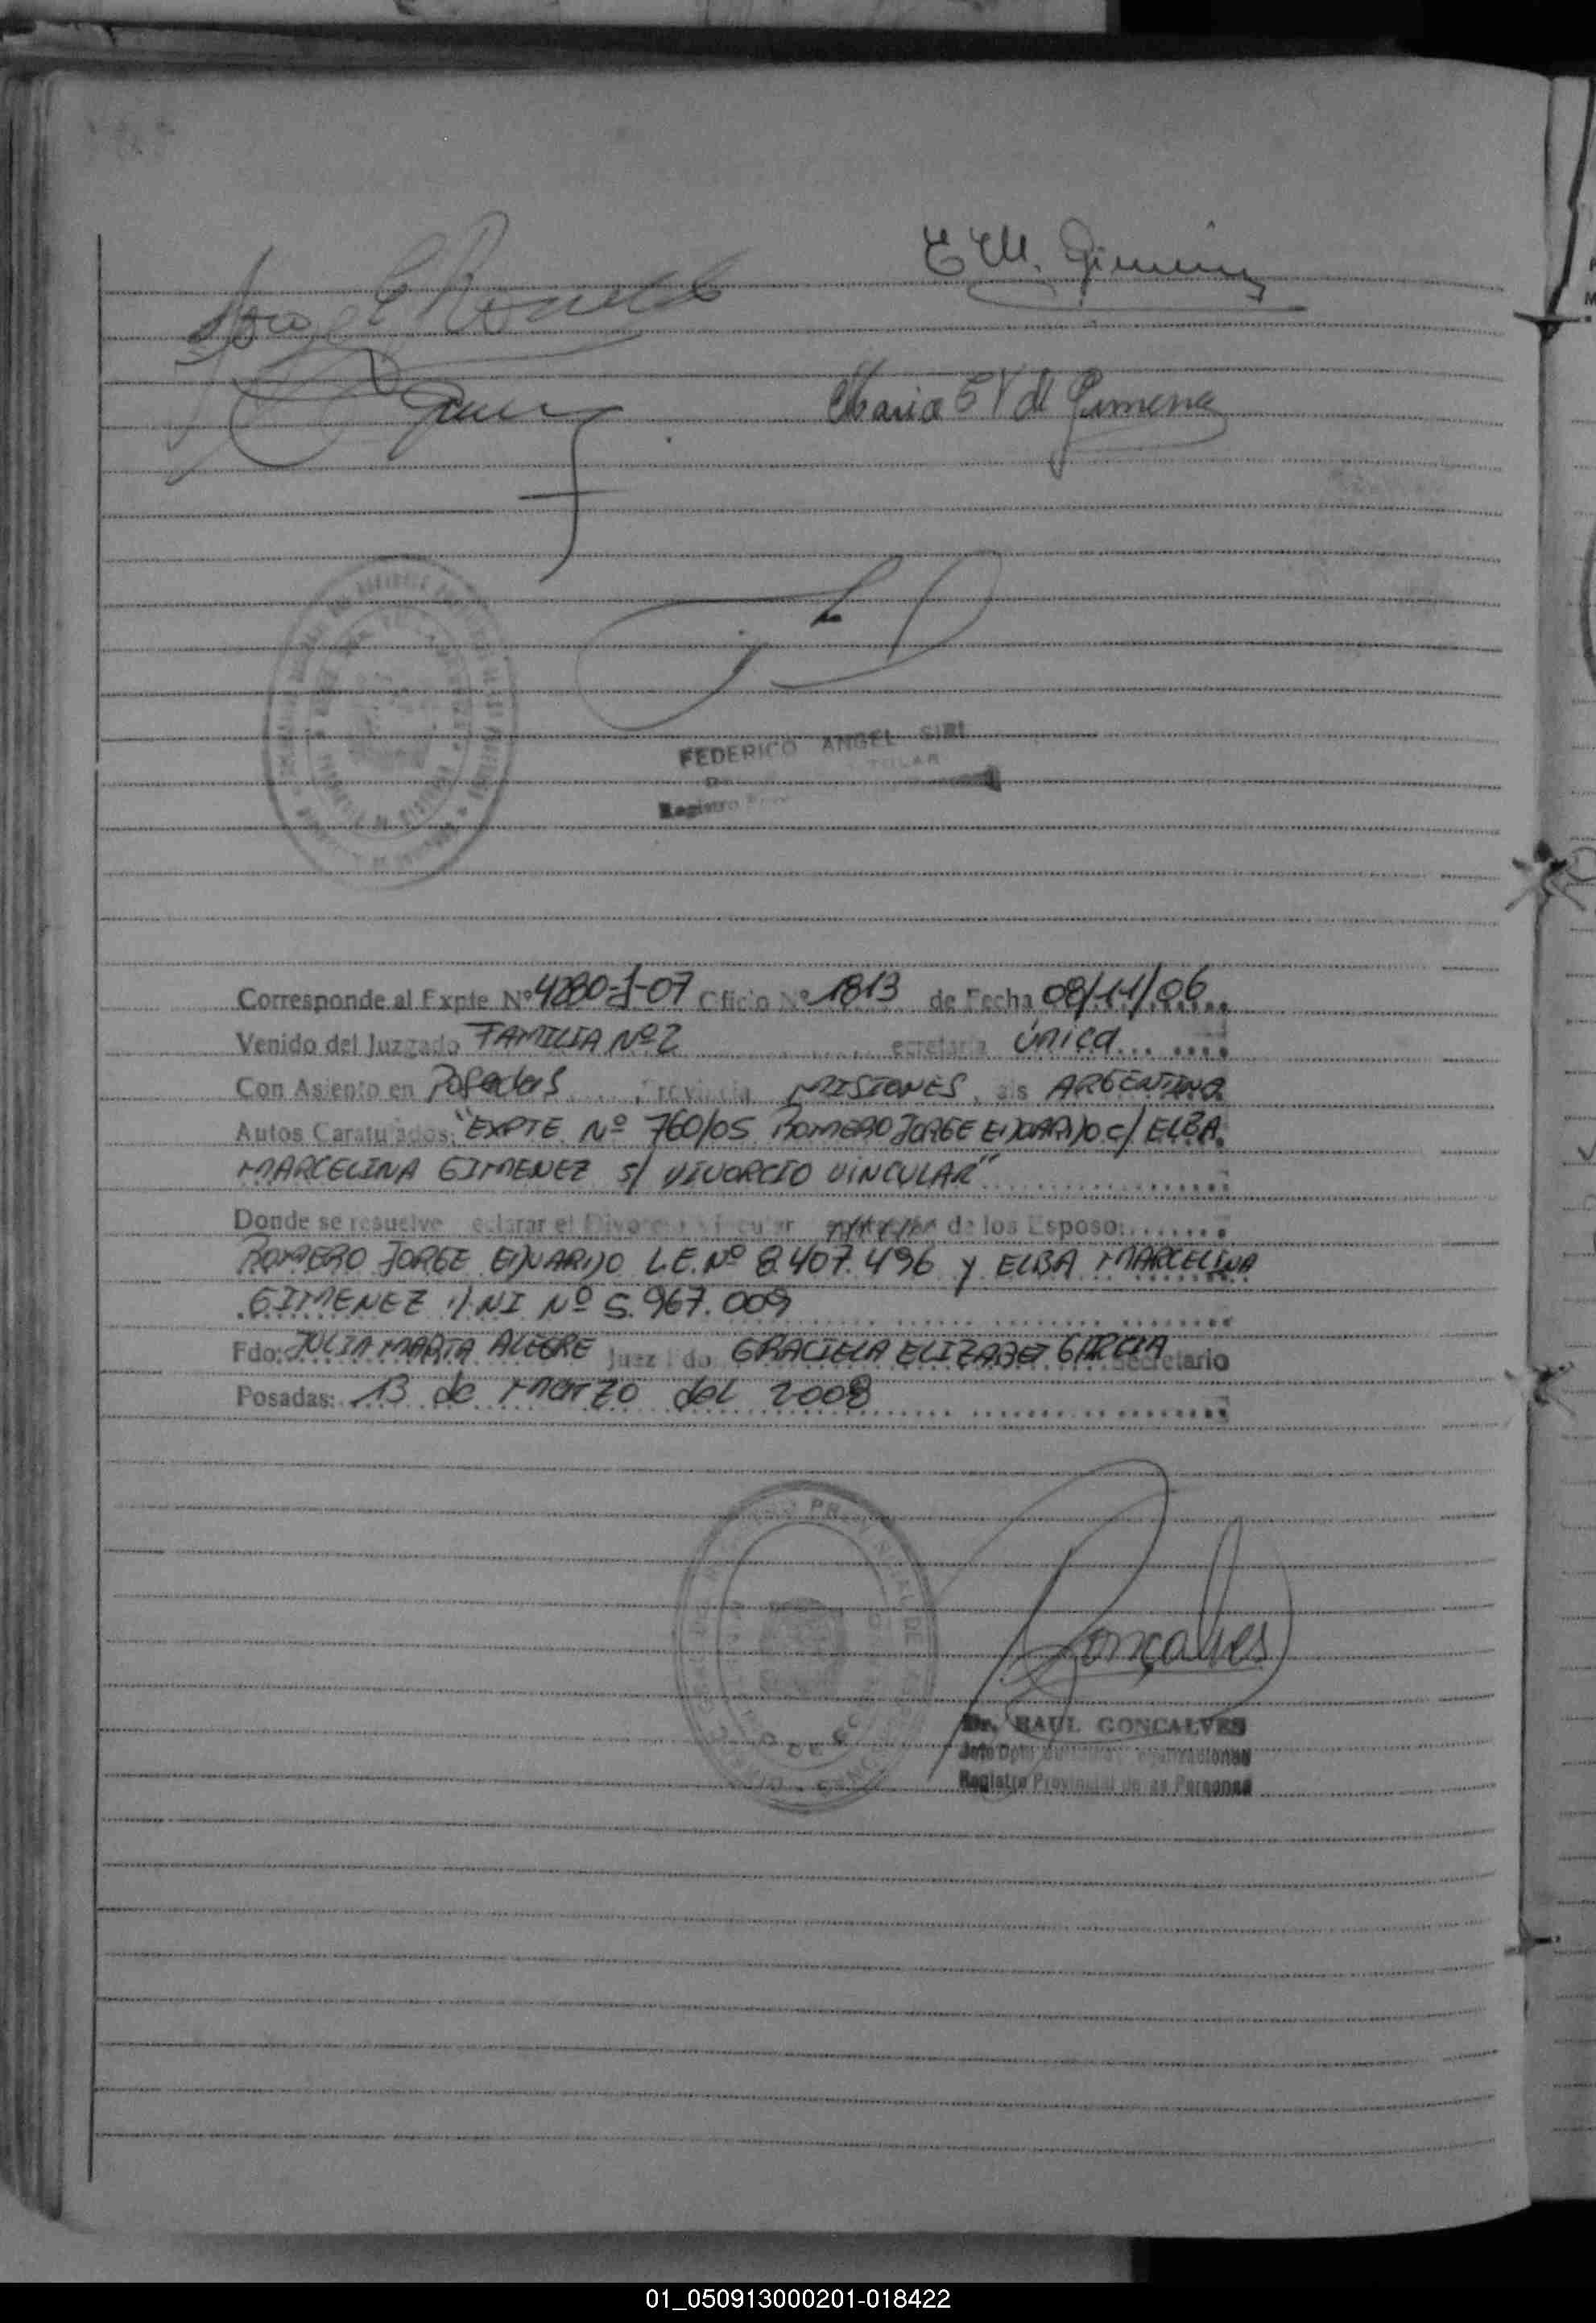 E M. Gimenez
Maria E V de Gimenez
FEDERICO ANGEL SIRI
Registro
Corresponde al Expte Nº 4280-J-07 Oficio Nº 1813 de Fecha 08/11/06
Venido del Juzgado FAMILIA Nº 2 ecretaria única
Con Asiento en Posadas Provincia MISIONES, ais ARGENTINA
Autos Caratulados: "EXPTE Nº 760/05 ROMERO JORGE EDUARDO c/ ELBA
MARCELINA GIMENEZ s/ DIVORCIO VINCULAR"
Donde se resuelve eclarar el Divorcio Vincular de los Esposo:
ROMERO JORGE EDUARDO L.E. Nº 8.407.496 y ELBA MARCELINA
GIMENEZ DNI Nº 5.967.009
Fdo: JULIA MARTA ALEGRE Juez Fdo GRACIELA ELIZABET GARCIA Secretario
Posadas: 13 de marzo del 2008
Goncalves
Dr. RAUL GONCALVES
Jefe Dpto
Registro Provincial de as Personas
01_050913000201-018422